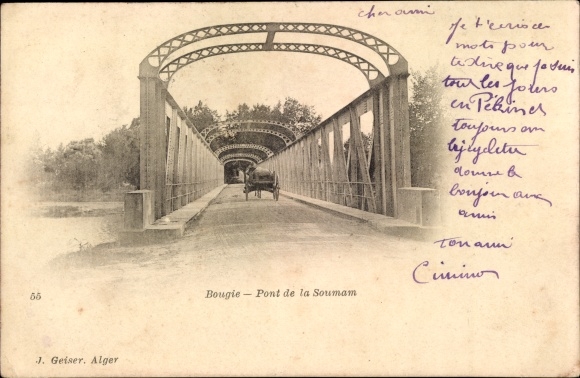 cher ami
Je t'écris ces
mots pour
te dire que je suis
tout les jours
en
toujours en
bicyclette
donne le
bonjour aux
amis
Ton ami
55
Bougie — Pont de la Soumam
J. Geiser. Alger